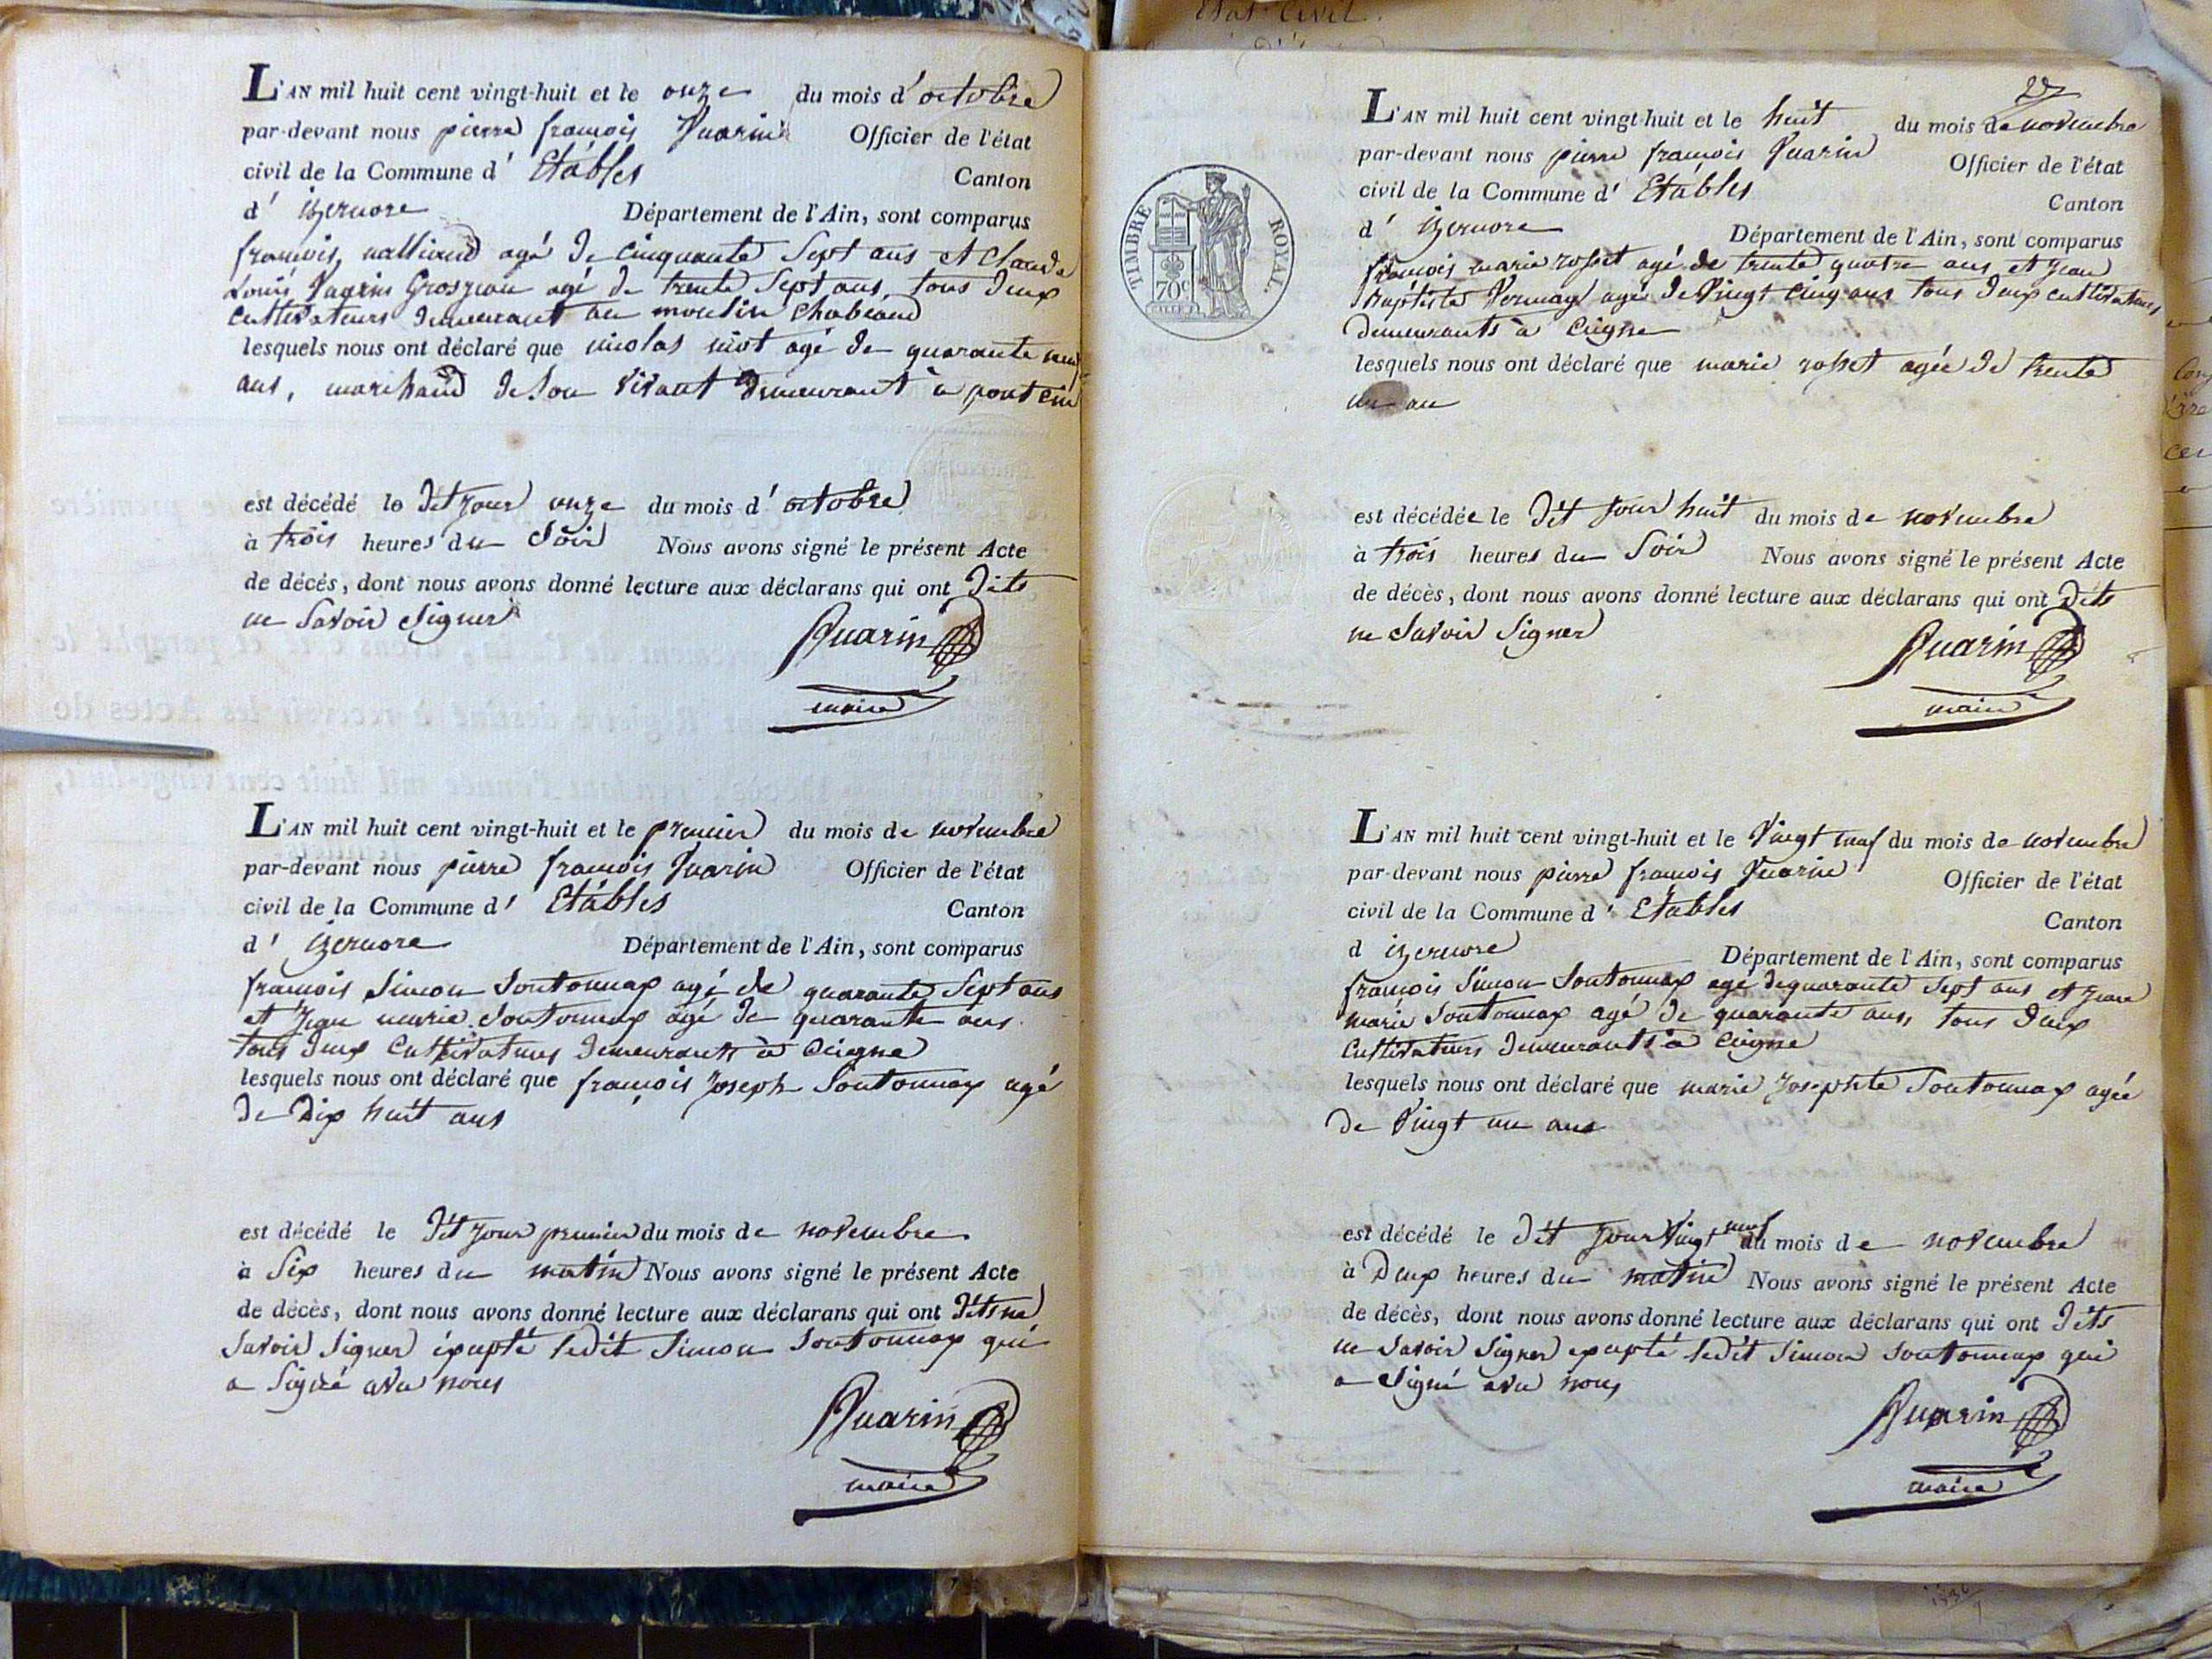 L'AN mil huit cent vingt-huit et le onze du mois d'octobre
par-devant nous pierre françois Quarin Officier de l'état
civil de la Commune d' Etables Canton
d' izernore Département de l'Ain, sont comparus
françois nalliaud agé de cinquante Sept ans et Claude
Louis Quarin Grosjean agé de trente Sept ans, tous deux
cultivateurs demeurant au moulin Chabeaud
lesquels nous ont déclaré que nicolas niot agé de quarante neuf
ans, marchand de Son vivant demeurant à pont
est décédé le dit jour onze du mois d' octobre
à trois heures du Soir Nous avons signé le présent Acte
de décès, dont nous avons donné lecture aux déclarans qui ont dits
ne Savoir Signer
Quarin
maire
L'AN mil huit cent vingt-huit et le premier du mois de novembre
par-devant nous pierre françois Quarin Officier de l'état
civil de la Commune d' Etables Canton
d' izernore Département de l'Ain, sont comparus
françois Simon Soutonnax agé de quarante Sept ans
et jean marie Soutonnax agé de quarante ans
tous deux Cultivateurs demeurants à Ceigne
lesquels nous ont déclaré que françois joseph Soutonnax agé
de dix huit ans
est décédé le dit jour premier du mois de novembre
à Six heures du matin Nous avons signé le présent Acte
de décès, dont nous avons donné lecture aux déclarans qui ont dits ne
Savoir Signer éxcepté ledit Simon Soutonnax qui
a Signé avec nous
Quarin
maire
Etat Civil.
27
TIMBRE ROYAL.
70c
L'AN mil huit cent vingt-huit et le huit du mois de novembre
par-devant nous pierre françois Quarin Officier de l'état
civil de la Commune d' Etables Canton
d' izernore Département de l'Ain, sont comparus
françois marie rosset agé de trente quatre ans et jean
Baptiste Vernay agé de Vingt Cinq ans tous deux cultivateurs
demeurants à Ceigne
lesquels nous ont déclaré que marie rosset agée de trente
un an
est décédée le dit jour huit du mois de novembre
à trois heures du Soir Nous avons signé le présent Acte
de décès, dont nous avons donné lecture aux déclarans qui ont dits
ne Savoir Signer
Quarin
maire
L'AN mil huit cent vingt-huit et le Vingt neuf du mois de novembre
par-devant nous pierre françois Quarin Officier de l'état
civil de la Commune d' Etables Canton
d izernore Département de l'Ain, sont comparus
françois Simon Soutonnax agé de quarante Sept ans et jean
marie Soutonnax agé de quarante ans, tous deux
Cultivateurs demeurants à Ceigne
lesquels nous ont déclaré que marie Josephte Soutonnax agée
de Vingt un ans
est décédé le dit jour Vingt neuf du mois de novembre
à Deux heures du matin Nous avons signé le présent Acte
de décès, dont nous avons donné lecture aux déclarans qui ont dits
ne Savoir Signer excepté ledit Simon Soutonnax qui
a Signé avec nous
Quarin
maire